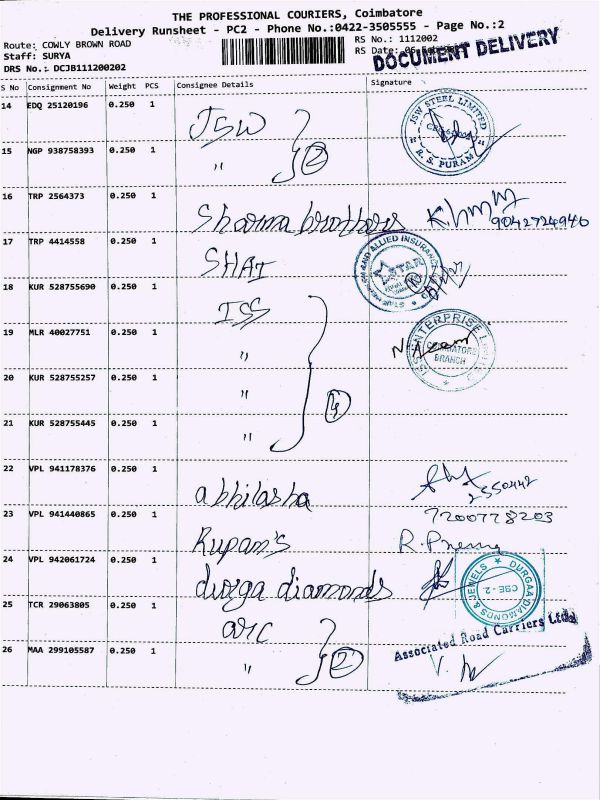 THE PROFESSIONAL COURIERS, Coimbatore
Delivery Runsheet - PC2 - Phone No.:0422-3505555 - Page No.:2
Route: COWLY BROWN ROAD
RS No.: 1112002
Staff: SURYA
RS Date:
DOCUMENT DELIVERY
DRS No.: DCJB111200202
S No Consignment No Weight PCS Consignee Details Signature
14 EDQ 25120196 0.250 1 JSW
JSW STEEL LIMITED
R. S. PURAM
15 NGP 938758393 0.250 1 " 2
16 TRP 2564373 0.250 1 Sharma brothers
9042724946
17 TRP 4414558 0.250 1 SHAI
AND ALLIED INSURANCE
STAR
18 KUR 528755690 0.250 1 ISS
ENTERPRISE
COIMBATORE
BRANCH
19 MLR 40027751 0.250 1 "
20 KUR 528755257 0.250 1 " 4
21 KUR 528755445 0.250 1 "
22 VPL 941178376 0.250 1 abhilasha
2550442
23 VPL 941440865 0.250 1 Rupam's
7200778203
R.Prema
24 VPL 942061724 0.250 1 durga diamonds
DURGAA DIAMONDS & JEWELS
CBE - 2.
25 TCR 29063805 0.250 1 arc
Associated Road Carriers Ltd.
26 MAA 299105587 0.250 1 " 2